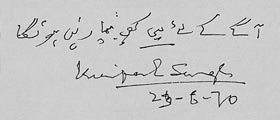 آگے کے لئے یہی کبھی بیمار نہیں ہوئگا
Kirpal Singh
23-6-70